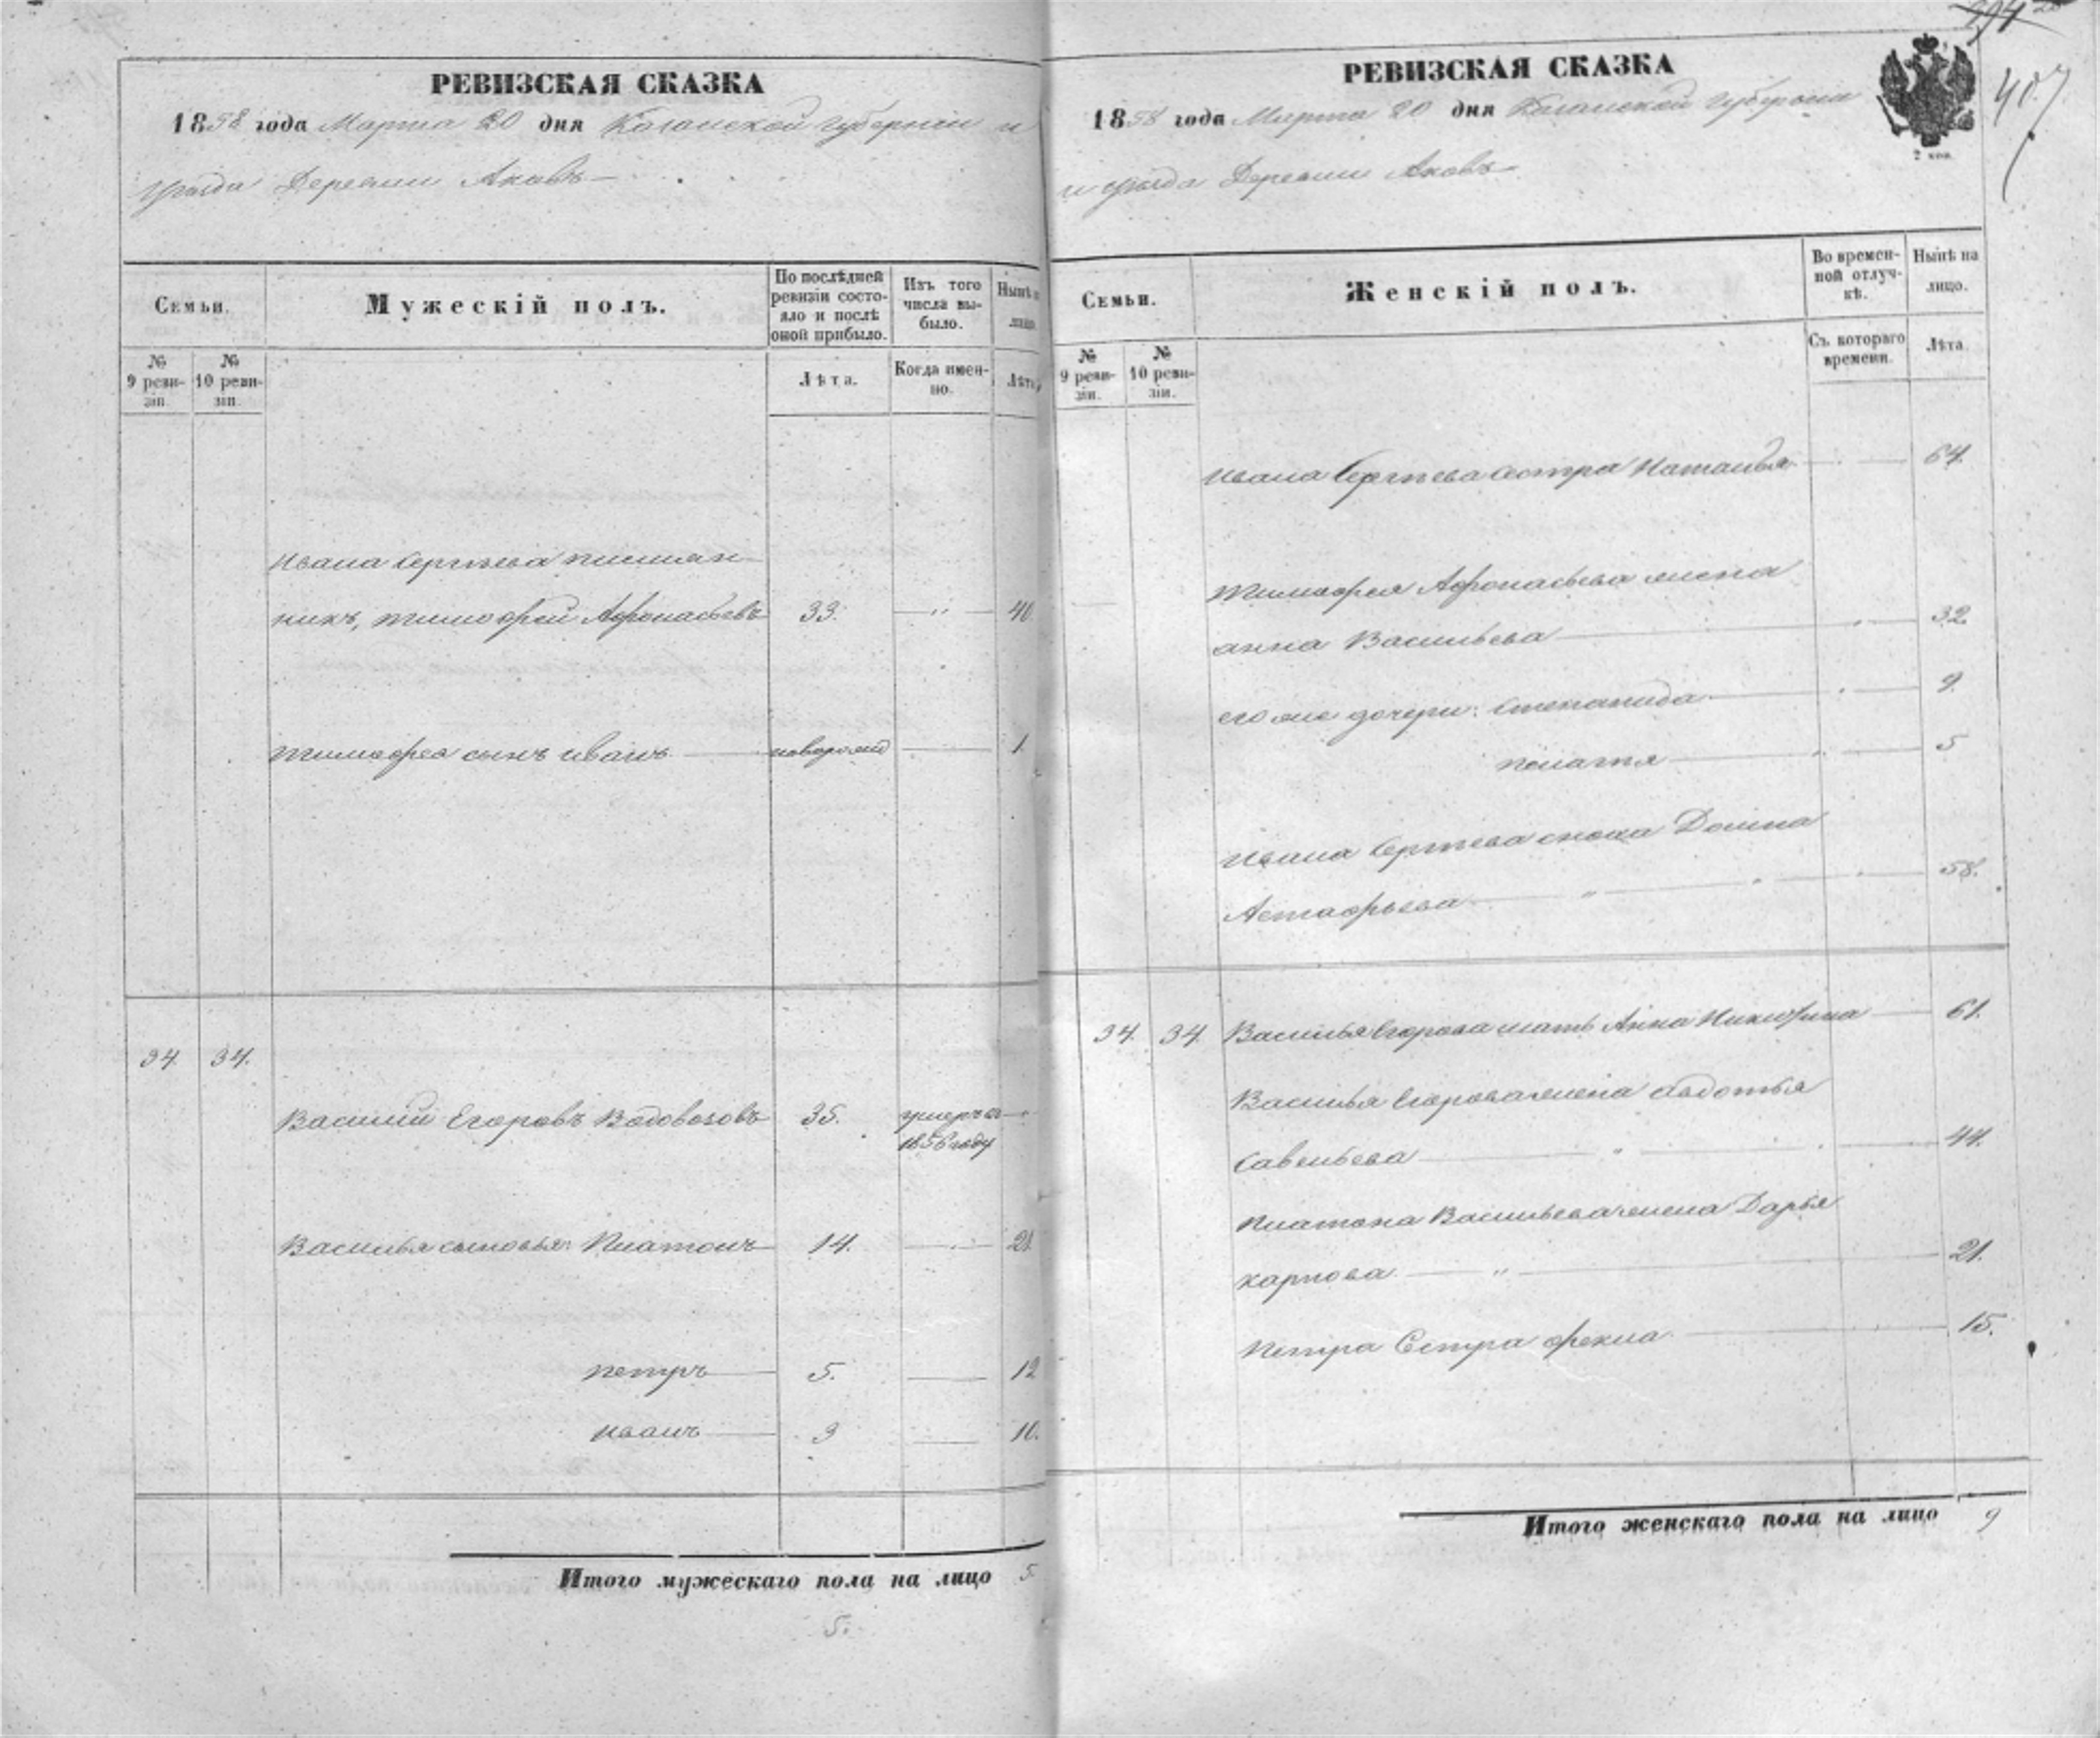 РЕВИЗСКАЯ СКАЗКА
1858 года Марта 20 дня Казанской губернии и
уѣзда Деревни Аковъ
Семьи.
Мужескій полъ.
По послѣдней ревизіи состояло и послѣ оной прибыло.
Изъ того числа выбыло.
Нынѣ
лицо
№ 9 ревизіи.
№ 10 ревизіи.
Лѣта.
Когда именно.
Лѣта
Ивана Сергѣева племян
никъ, тимофей Афонасьевъ 33. — " — 40
тимофея сынъ иванъ — новорожд — 1.
34. 34.
Василій Егоровъ Водовозовъ 35. умеръ въ
1856 году
Василья сыновья: Платонъ 14. — 21.
петръ — 5. — 12
иванъ — 3 — 10.
Итого мужескаго пола на лицо 5
5.
294
407
РЕВИЗСКАЯ СКАЗКА
1858 года Марта 20 дня Казанской губерніи
и уѣзда Деревни Аковъ
2 коп.
Семьи.
Женскій полъ.
Во временной отлучкѣ.
Нынѣ на лицо.
№ 9 ревизіи.
№ 10 ревизіи.
Съ котораго времени.
Лѣта.
Ивана Сергѣева сестра Наталья — 64.
Тимофея Афонасьева жена
анна Васильева — 32.
его же дочери: Степанида — 9.
пелагея — 5
Ивана Сергѣева сноха Домна
Астафьева — " — 58.
34. 34. Василья Егорова мать Анна Никифорова — 61.
Василья Егорова жена авдотья
Савельева — " — 44.
Платона Васильева жена Дарья
карпова — " — 21.
Петра Сестра фекла — 15.
Итого женскаго пола на лицо 9